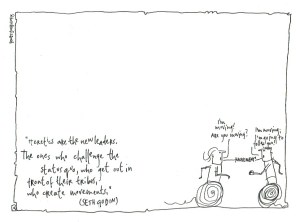 "Heretics are the new leaders.
The ones who challenge the
status quo, who get out in
front of their tribes,
who create movements."
(SETH GODIN)
I'm
moving!
Are you moving?
I'm moving,
I'm going to
follow you!!
MOVEMENT